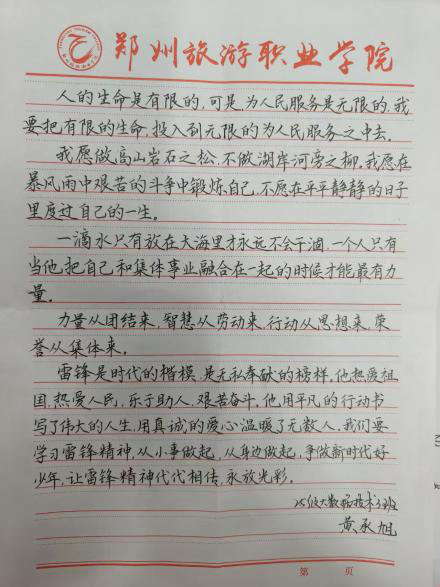 郑州旅游职业学院
人的生命是有限的,可是,为人民服务是无限的,我
要把有限的生命,投入到无限的为人民服务之中去。
我愿做高山岩石之松,不做湖岸河旁之柳。我愿在
暴风雨中艰苦的斗争中锻炼自己,不愿在平平静静的日子
里度过自己的一生。
一滴水只有放在大海里才永远不会干涸,一个人只有
当他把自己和集体事业融合在一起的时候才能最有力
量。
力量从团结来,智慧从劳动来,行动从思想来,荣
誉从集体来。
雷锋是时代的楷模,是无私奉献的榜样。他热爱祖
国,热爱人民,乐于助人,艰苦奋斗。他用平凡的行动书
写了伟大的人生,用真诚的爱心温暖了无数人,我们要
学习雷锋精神,从小事做起,从身边做起,争做新时代好
少年,让雷锋精神代代相传,永放光彩。
25级大数据技术3班
黄承旭
第 页